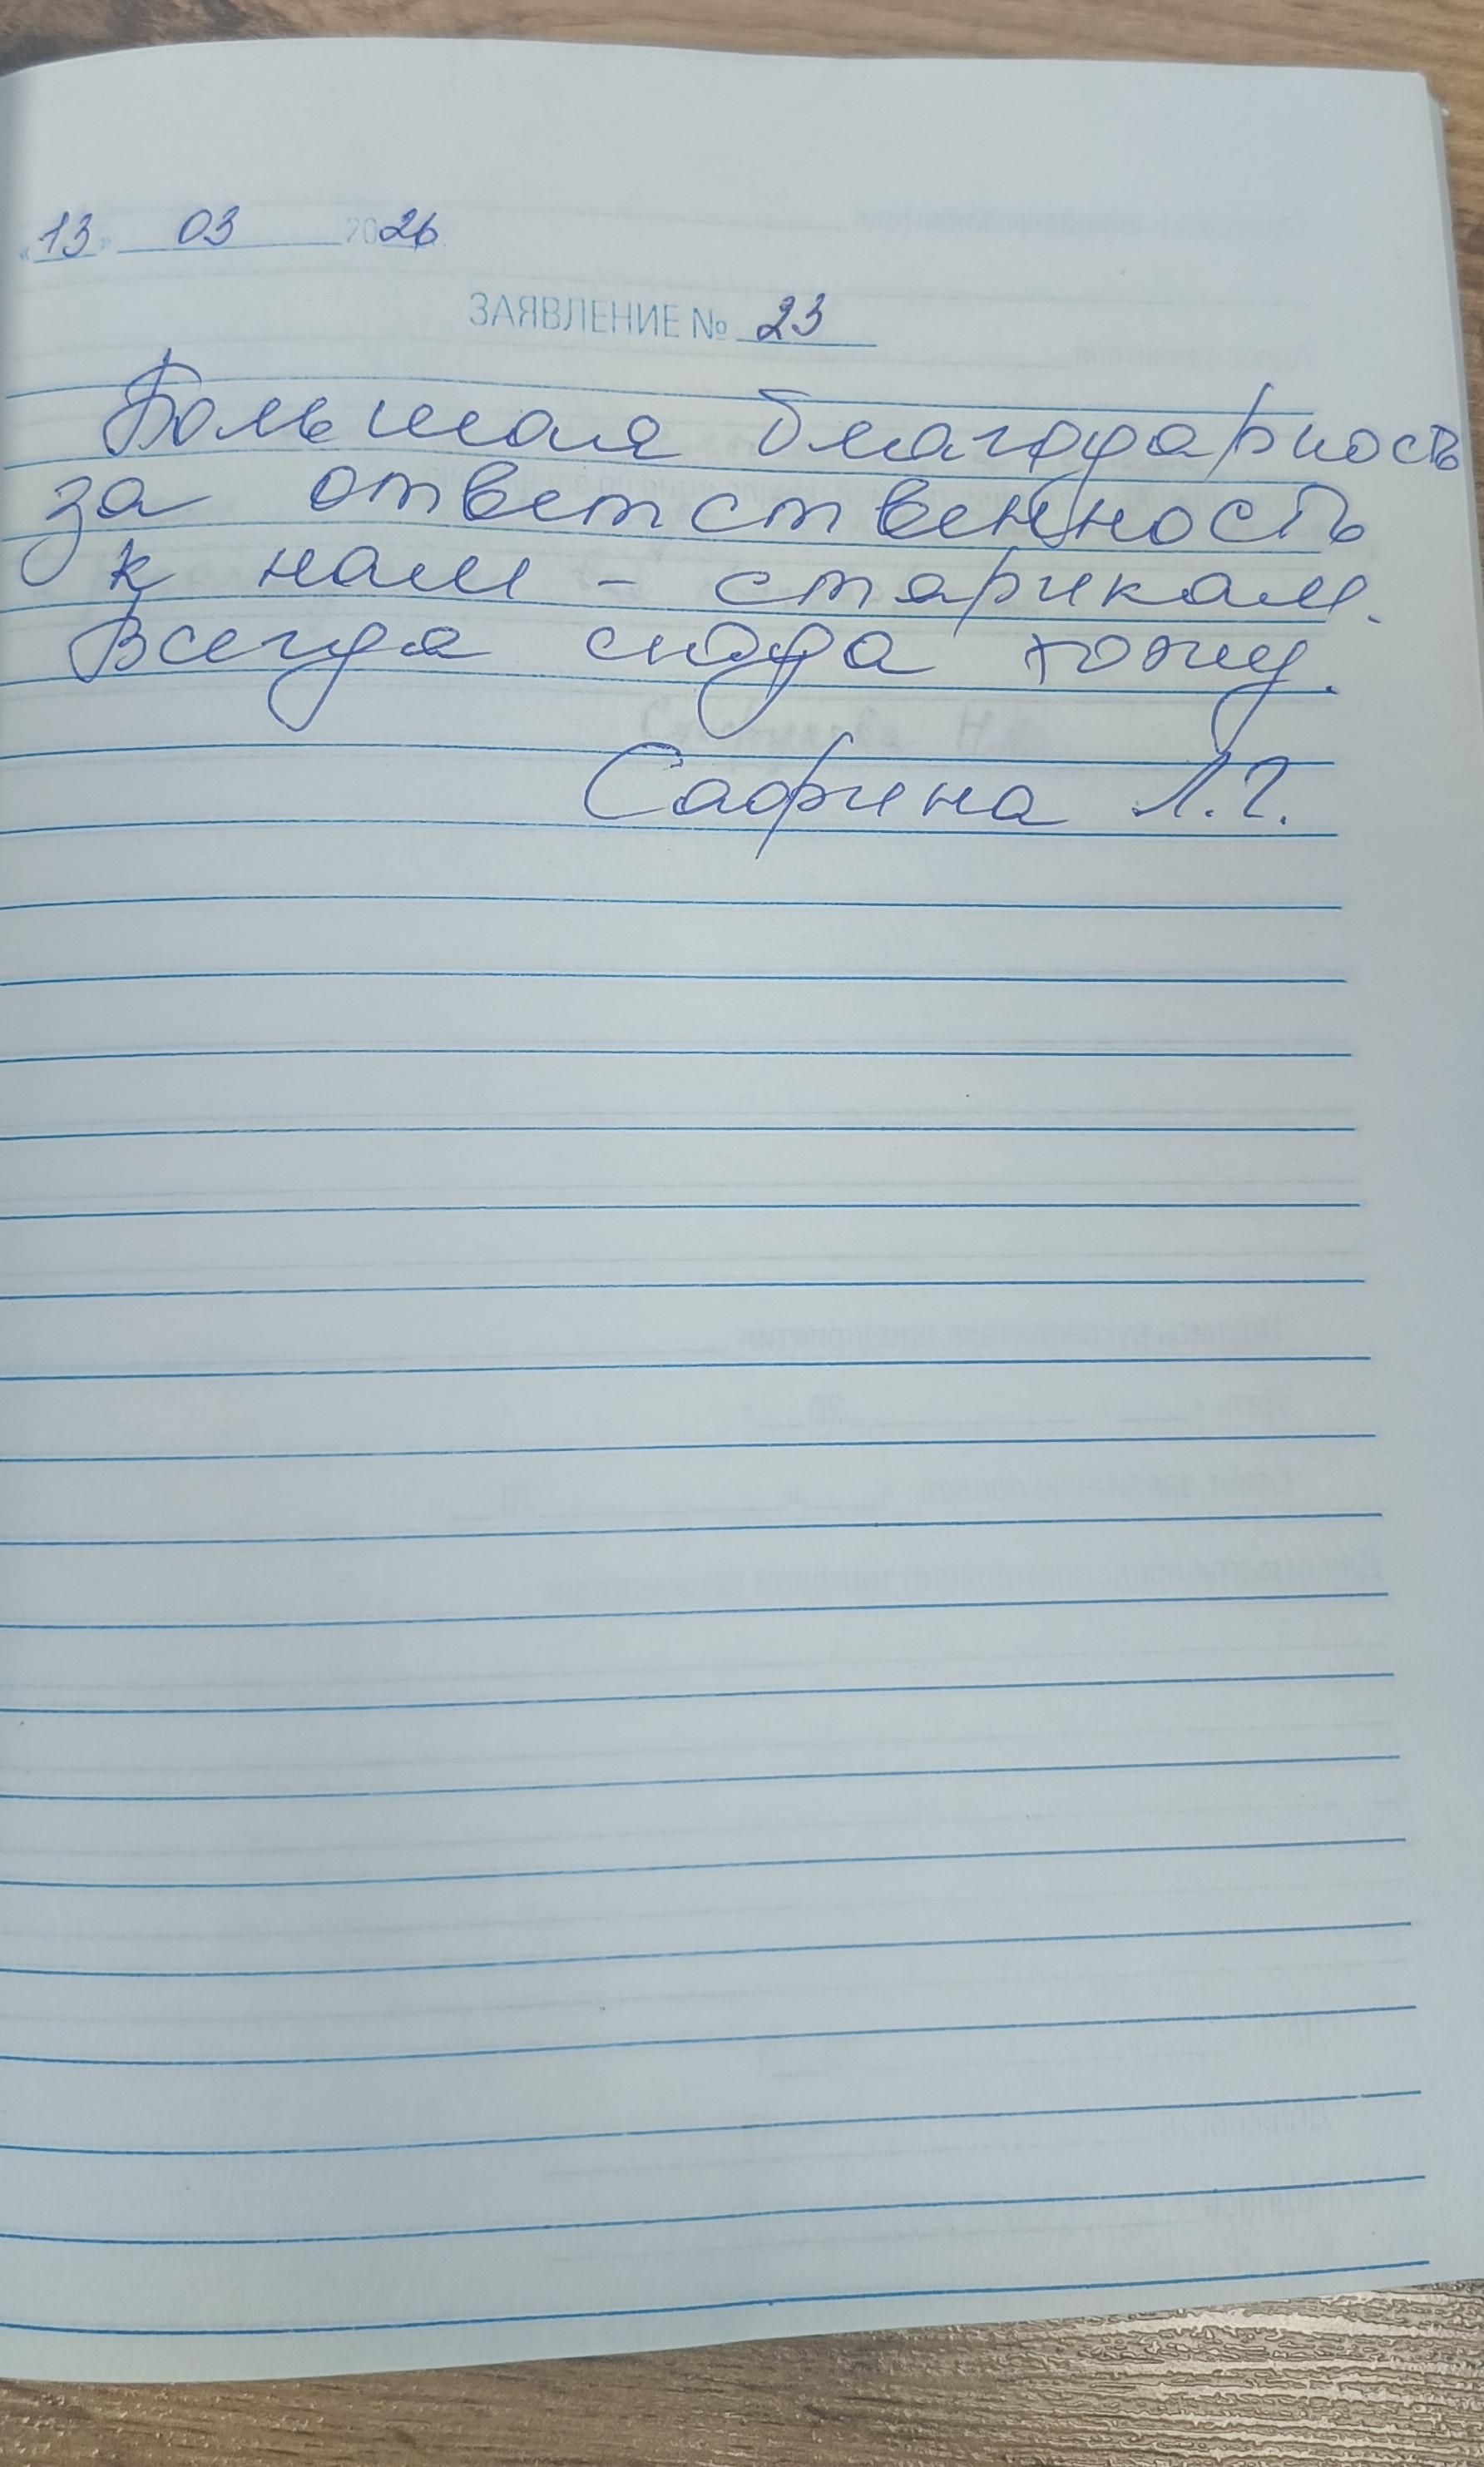 «13» 03 2026.
ЗАЯВЛЕНИЕ № 23
Большая благодарность
за ответственность
к нам - старикам.
Всегда сюда хожу.
Сафина Л.Г.